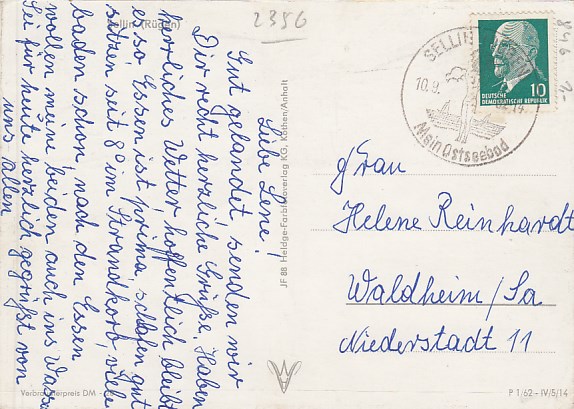 Sellin (Rügen)
2356
Liebe Lene!
Gut gelandet senden wir
Dir recht herzliche Grüße. Haben
herrliches Wetter hoffentlich bleibt
es so. Essen ist prima, schlafen gut
sitzen seit 8º im Strandkorb, viele
baden schon, nach den Essen
wollen meine beiden auch ins Wasser
Sei für heute herzlich gegrüßt von
uns allen
JF 88 Heldge-Farbfotoverlag KG, Köthen/Anhalt
Verbraucherpreis DM
SELLIN
10.9.
Mein Ostseebad
10
DEUTSCHE
DEMOKRATISCHE REPUBLIK
Frau
Helene Reinhardt
Waldheim/Sa
Niederstadt 11
P 1/62 - IV/5/14